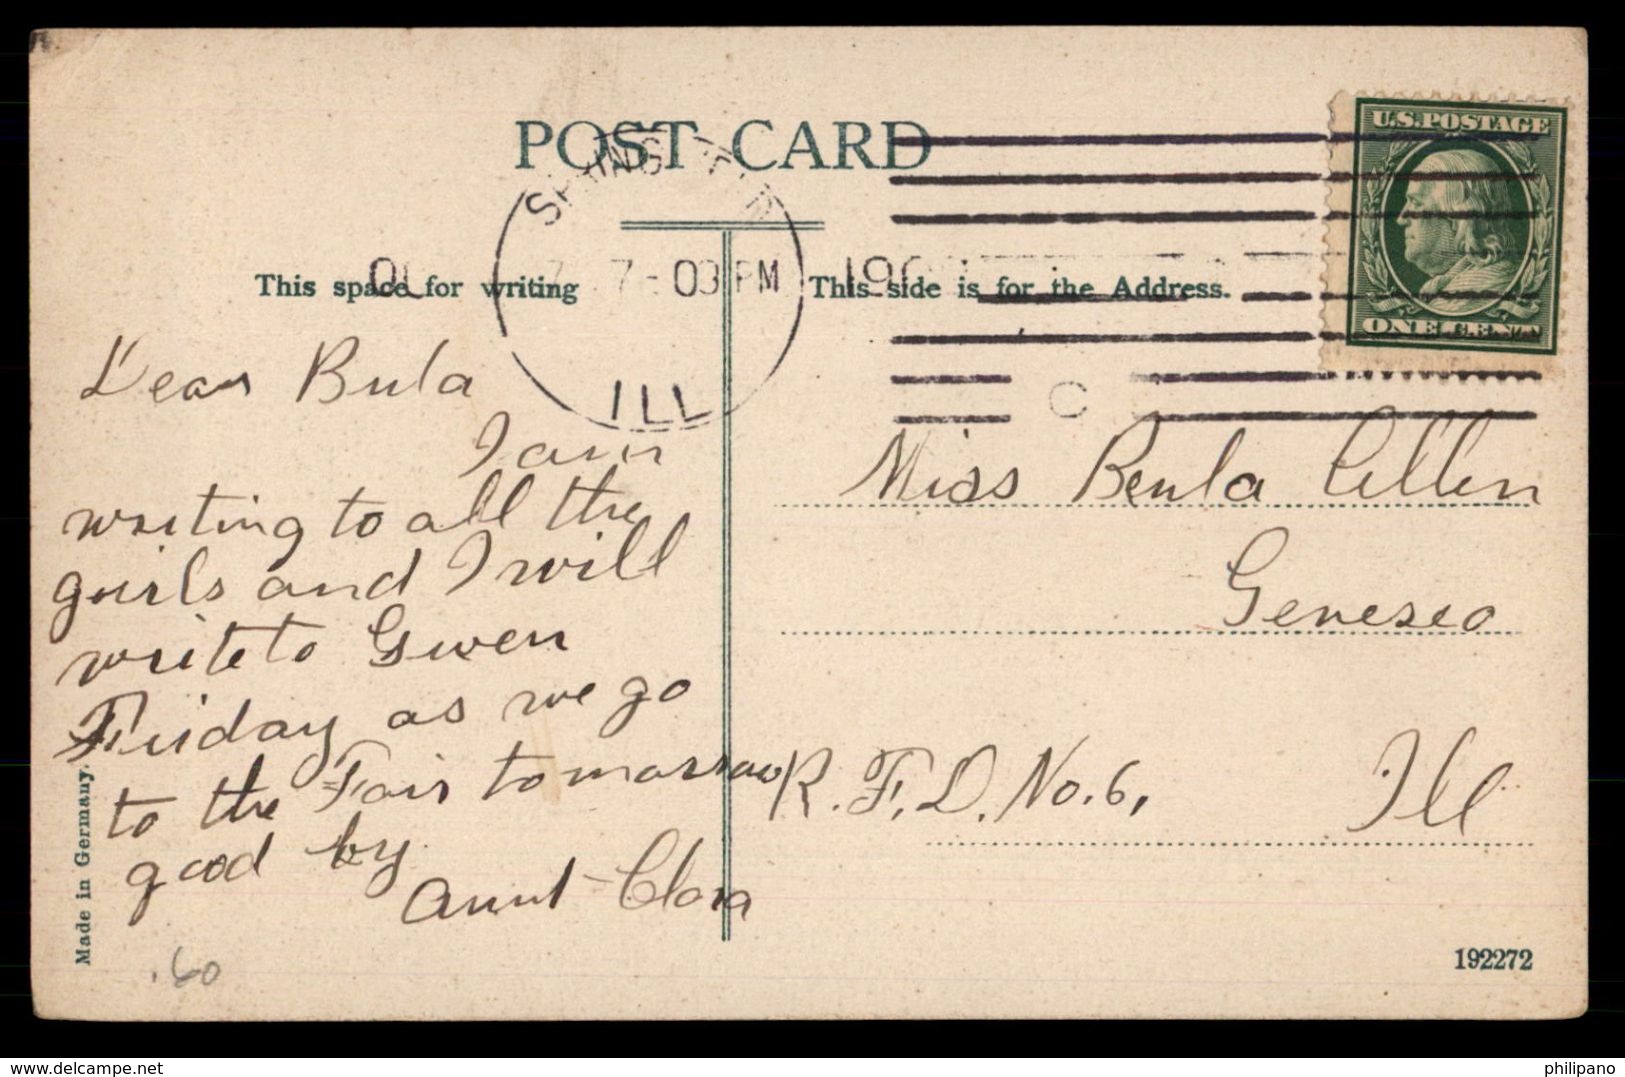 POST CARD
This space for writing
This side is for the Address.
7-03 PM
190
ILL
U.S. POSTAGE
ONE CENT
Dear Bula
I am
writing to all the
girls and I will
write to Gwen
Friday as we go
to the Fair tomarraw
good by.
Aunt Clara
Miss Beula
Geneseo
R.F.D. No. 6, Ill
Made in Germany.
.60
192272
delcampe.net
philipano